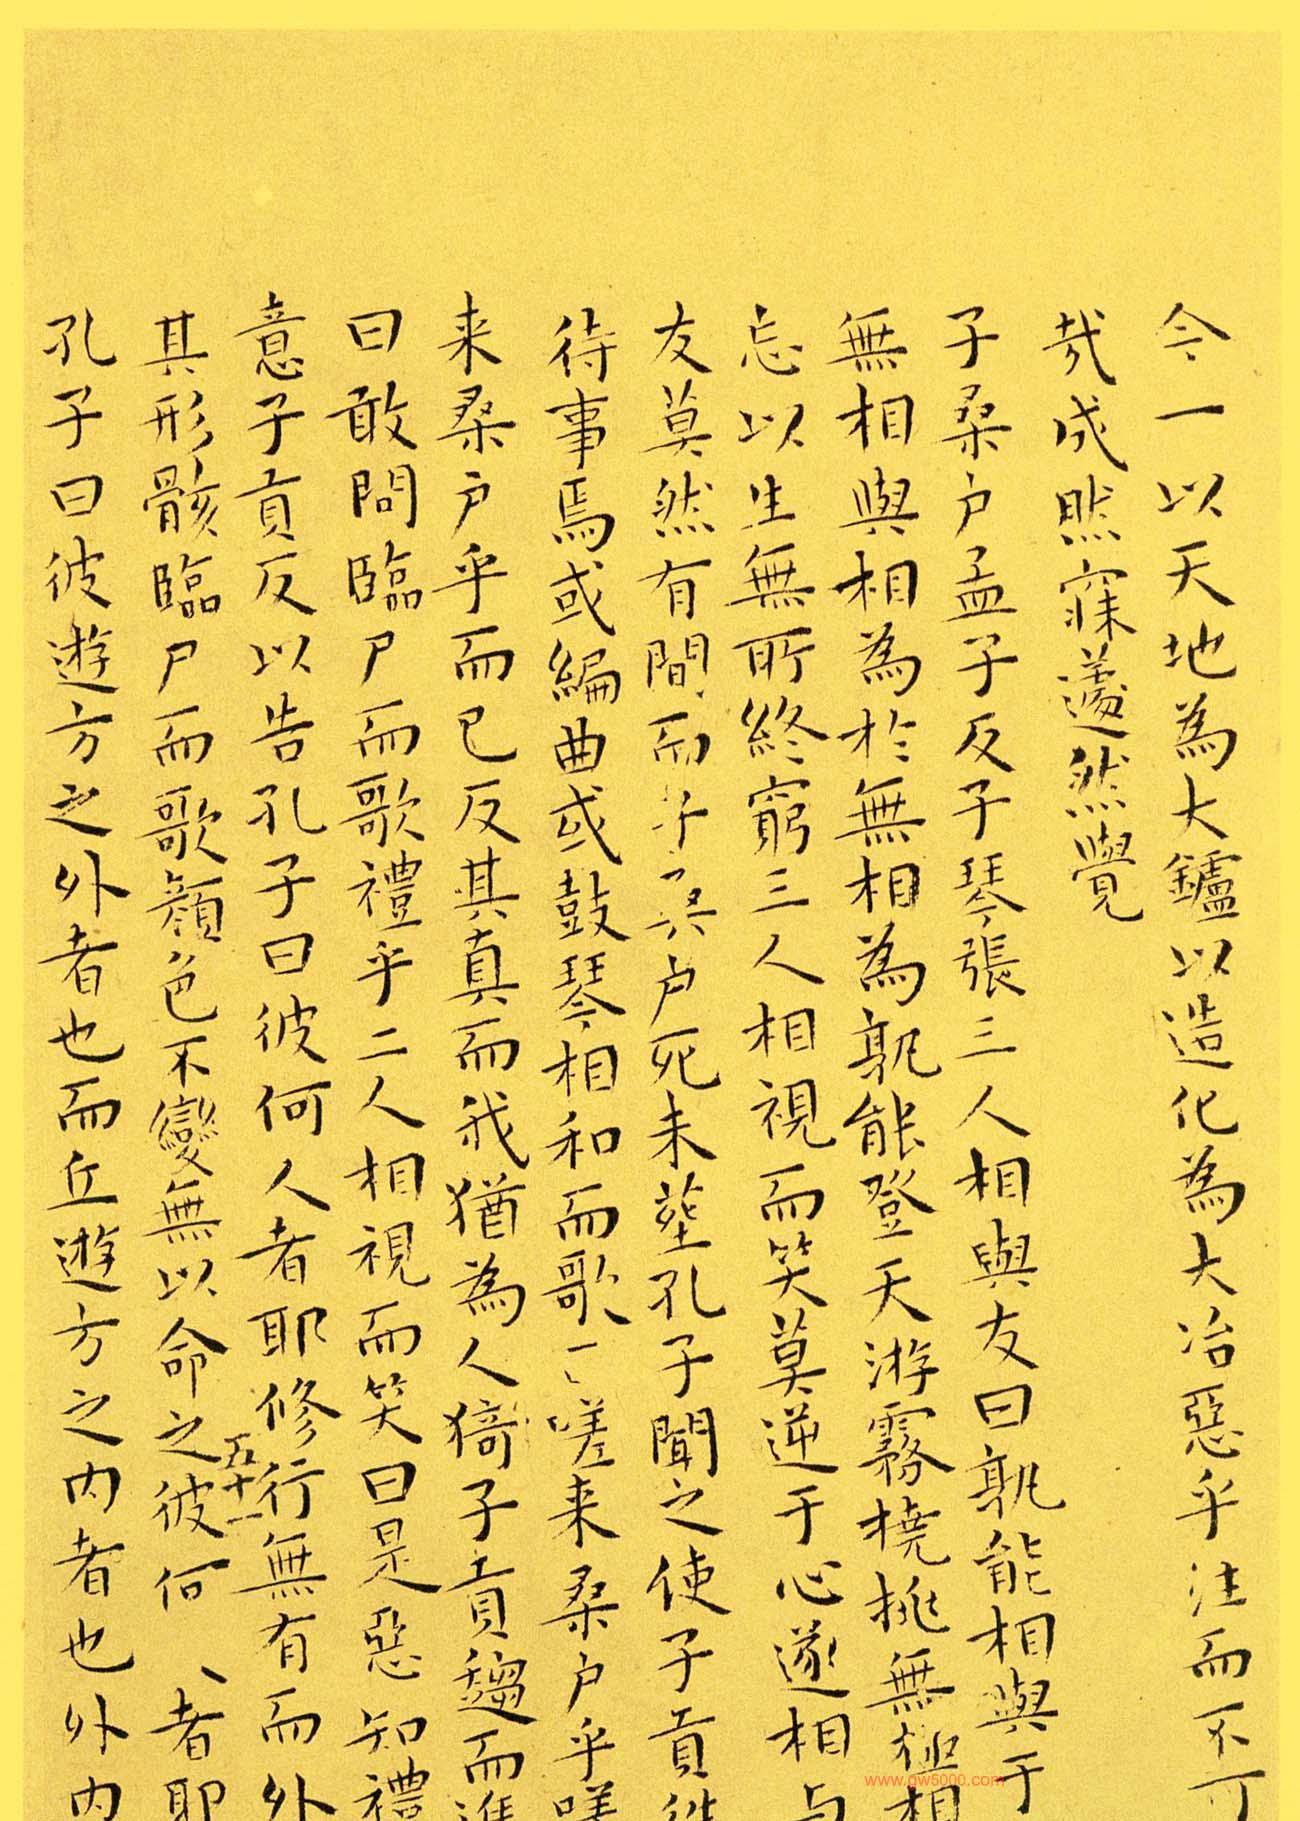 今一以天地為大鑪以造化為大冶惡乎注而不可
哉成然寐蘧然覺
子桑户孟子反子琴張三人相與友曰孰能相與于
無相與相為於無相為孰能登天游霧撓挑無極相
忘以生無所終窮三人相視而笑莫逆于心遂相与
友莫然有間而子桑户死未塟孔子聞之使子貢往
待事焉或編曲或鼓琴相和而歌曰嗟来桑户乎嗟
来桑户乎而已反其真而我猶為人猗子貢趨而進
曰敢問臨尸而歌禮乎二人相視而笑曰是惡知禮
意子貢反以告孔子曰彼何人者耶修行無有而外
其形骸臨尸而歌顔色不變無以命之彼何人者耶
五十一
孔子曰彼遊方之外者也而丘遊方之内者也外内
www.gw5000.com